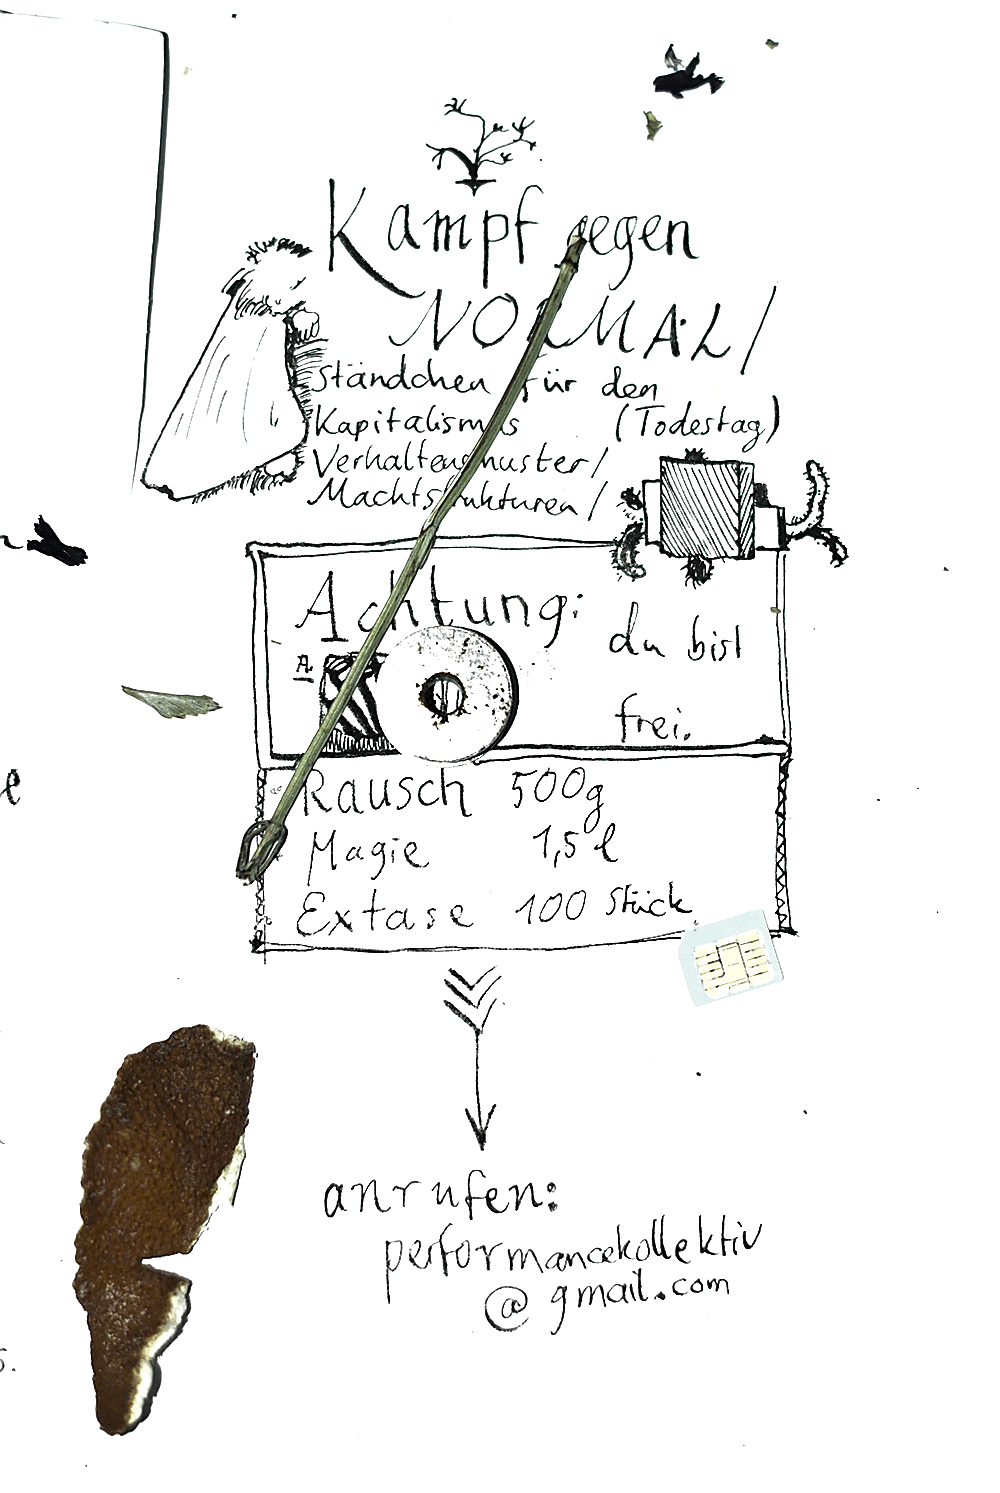 Kampf gegen
NORMAL/
Ständchen für den
Kapitalismus (Todestag)
Verhaltensmuster/
Machtstrukturen/
Achtung:
du bist
A
frei.
Rausch 500g
Magie 1,5 l
Extase 100 Stück
anrufen:
performancekollektiv
@gmail.com